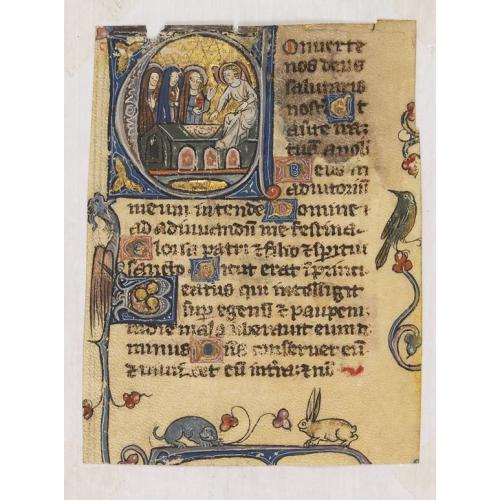 Onverte
nos deus
salutaris
noster Et
auerte irā;
tuā a nob̄
Deus in
adiutoriū
meum intende Domine
ad adiuuandū me festina.
Gloria patri & filio & spiritui
sancto Sicut erat ī princi
Beatus qui intelligit
sup egenū & pauperē
in die mala liberauit eum d
minus Dn̄s conseruet eū
& uiuificet eū